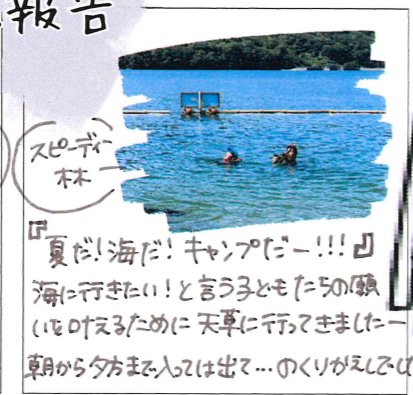 報告
スピーディー
林
『夏だ!海だ!キャンプだー!!!』
海に行きたい!と言う子どもたちの願
いを叶えるために天草に行ってきましたー
朝から夕方まで入っては出て…のくりかえしでした